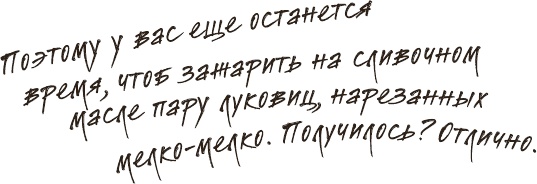 Поэтому у вас еще останется
время, чтоб зажарить на сливочном
масле пару луковиц, нарезанных
мелко-мелко. Получилось? Отлично.